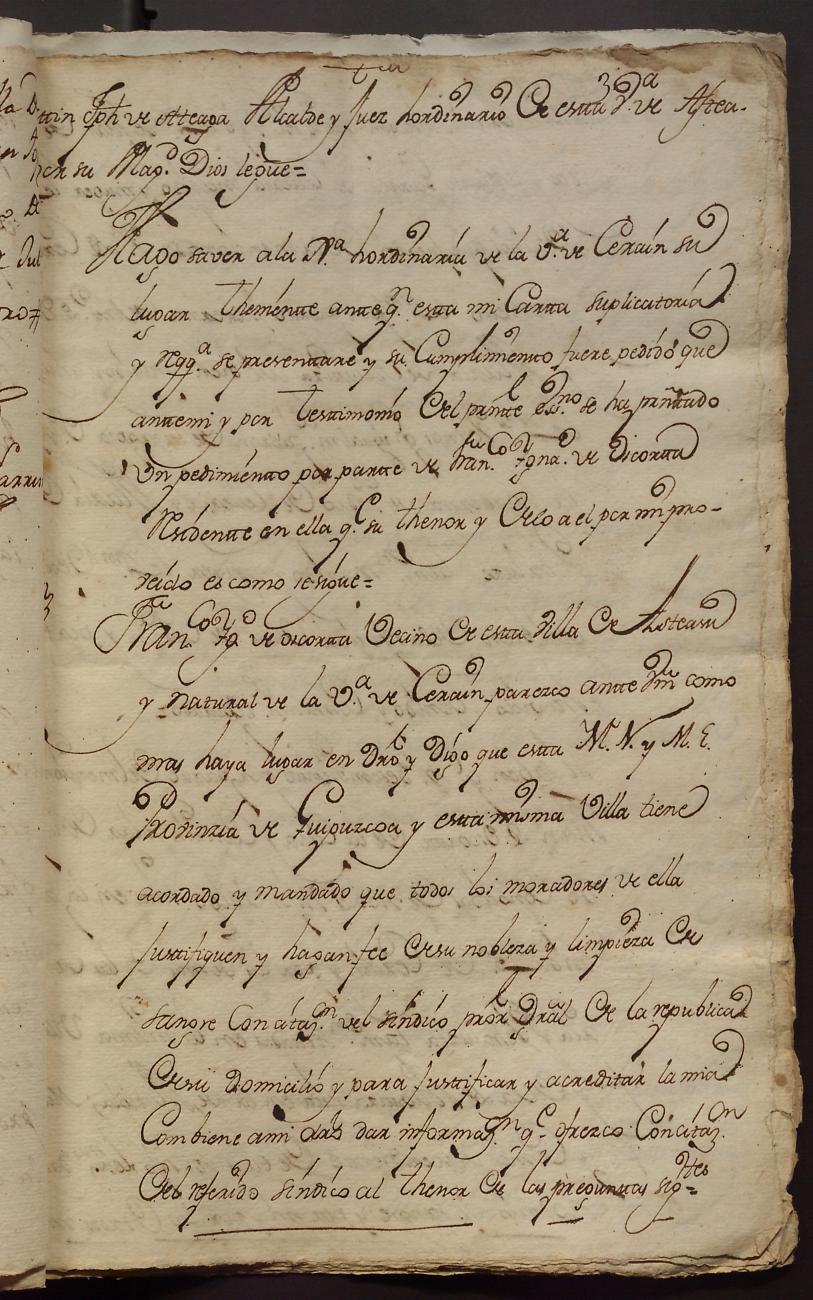 ttin Jph de Atteaga Alcalde y Juez hordinario de estta V.ª de Astea-
por su Mag.d Dios legue=
Hago saver ala Ja hordinaria de la V.ª de Cerain su
lugar theniente ante q.n esta mi Carta suplicatoria
y reqq.ª se presenttare y su Cumplimiento fuere pedido que
anttemi y por testtimonio del pntte ess.no se ha presentado
Un pedimiento por partte de Fran.co Ygna.o de Dicortta
Residente en ella q.e su thenor y delo a el por mi pro-
veido es como se sigue=
Fran.co Yg.o de dicortta Vecino de estta Villa de Asteasu
y Natural de la V.ª de Cerain parezco antte Vm como
mas haya lugar en Dro y Digo que estta M. N. y M. L.
Provinzia de Guipuzcoa y estta misma Villa tiene
acordado y mandado que todos los moradores de ella
justtifiquen y hagan fee de su nobleza y limpieza de
sangre Con zitaz.n del sindico pror gral de la republica
de su domicilio y para justtificar y acreditar la mia
Combiene ami dro dar informaz.n q.e ofrezco Con zitaz.on
del referido sindico al thenor de las preguntas sig.tes=